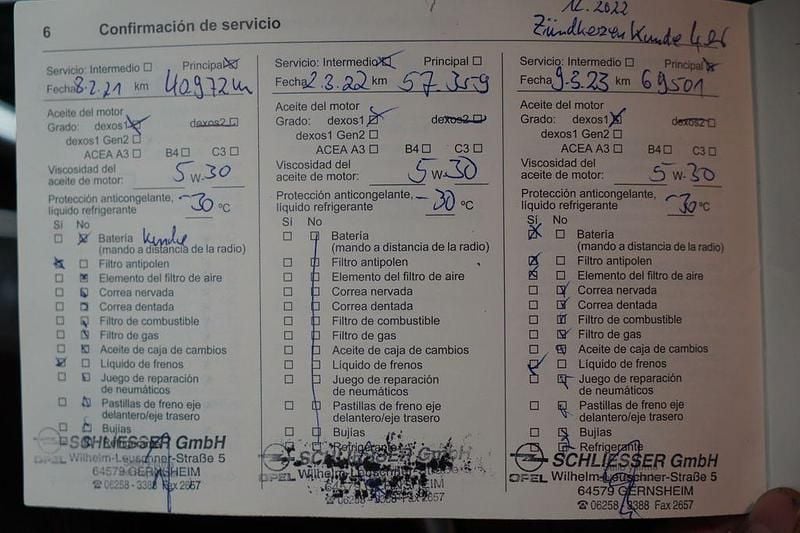 6 Confirmación de servicio
12.2022
Zündkerzen Kunde
Servicio: Intermedio Principal
Fecha 8.2.21 km 40972 km
Aceite del motor
Grado: dexos1 dexos2
dexos1 Gen2
ACEA A3 B4 C3
Viscosidad del
aceite de motor: 5 W-30
Protección anticongelante,
líquido refrigerante -30 °C
Sí No
Batería Kunde
(mando a distancia de la radio)
Filtro antipolen
Elemento del filtro de aire
Correa nervada
Correa dentada
Filtro de combustible
Filtro de gas
Aceite de caja de cambios
Líquido de frenos
Juego de reparación
de neumáticos
Pastillas de freno eje
delantero/eje trasero
Bujías
SCHLIESSER GmbH
OPEL Wilhelm-Leuschner-Straße 5
64579 GERNSHEIM
06258 - 3388 Fax 2657
Servicio: Intermedio Principal
Fecha 2.3.22 km 57.359
Aceite del motor
Grado: dexos1 dexos2
dexos1 Gen2
ACEA A3 B4 C3
Viscosidad del
aceite de motor: 5 W-30
Protección anticongelante,
líquido refrigerante -30 °C
Sí No
Batería
(mando a distancia de la radio)
Filtro antipolen
Elemento del filtro de aire
Correa nervada
Correa dentada
Filtro de combustible
Filtro de gas
Aceite de caja de cambios
Líquido de frenos
Juego de reparación
de neumáticos
Pastillas de freno eje
delantero/eje trasero
Bujías
Refrigerante
SCHLIESSER GmbH
OPEL Wilhelm
Servicio: Intermedio Principal
Fecha 9.3.23 km 69501
Aceite del motor
Grado: dexos1 dexos2
dexos1 Gen2
ACEA A3 B4 C3
Viscosidad del
aceite de motor: 5 W-30
Protección anticongelante,
líquido refrigerante -30 °C
Sí No
Batería
(mando a distancia de la radio)
Filtro antipolen
Elemento del filtro de aire
Correa nervada
Correa dentada
Filtro de combustible
Filtro de gas
Aceite de caja de cambios
Líquido de frenos
Juego de reparación
de neumáticos
Pastillas de freno eje
delantero/eje trasero
Bujías
Refrigerante
SCHLIESSER GmbH
OPEL Wilhelm-Leuschner-Straße 5
64579 GERNSHEIM
06258 - 3388 Fax 2657